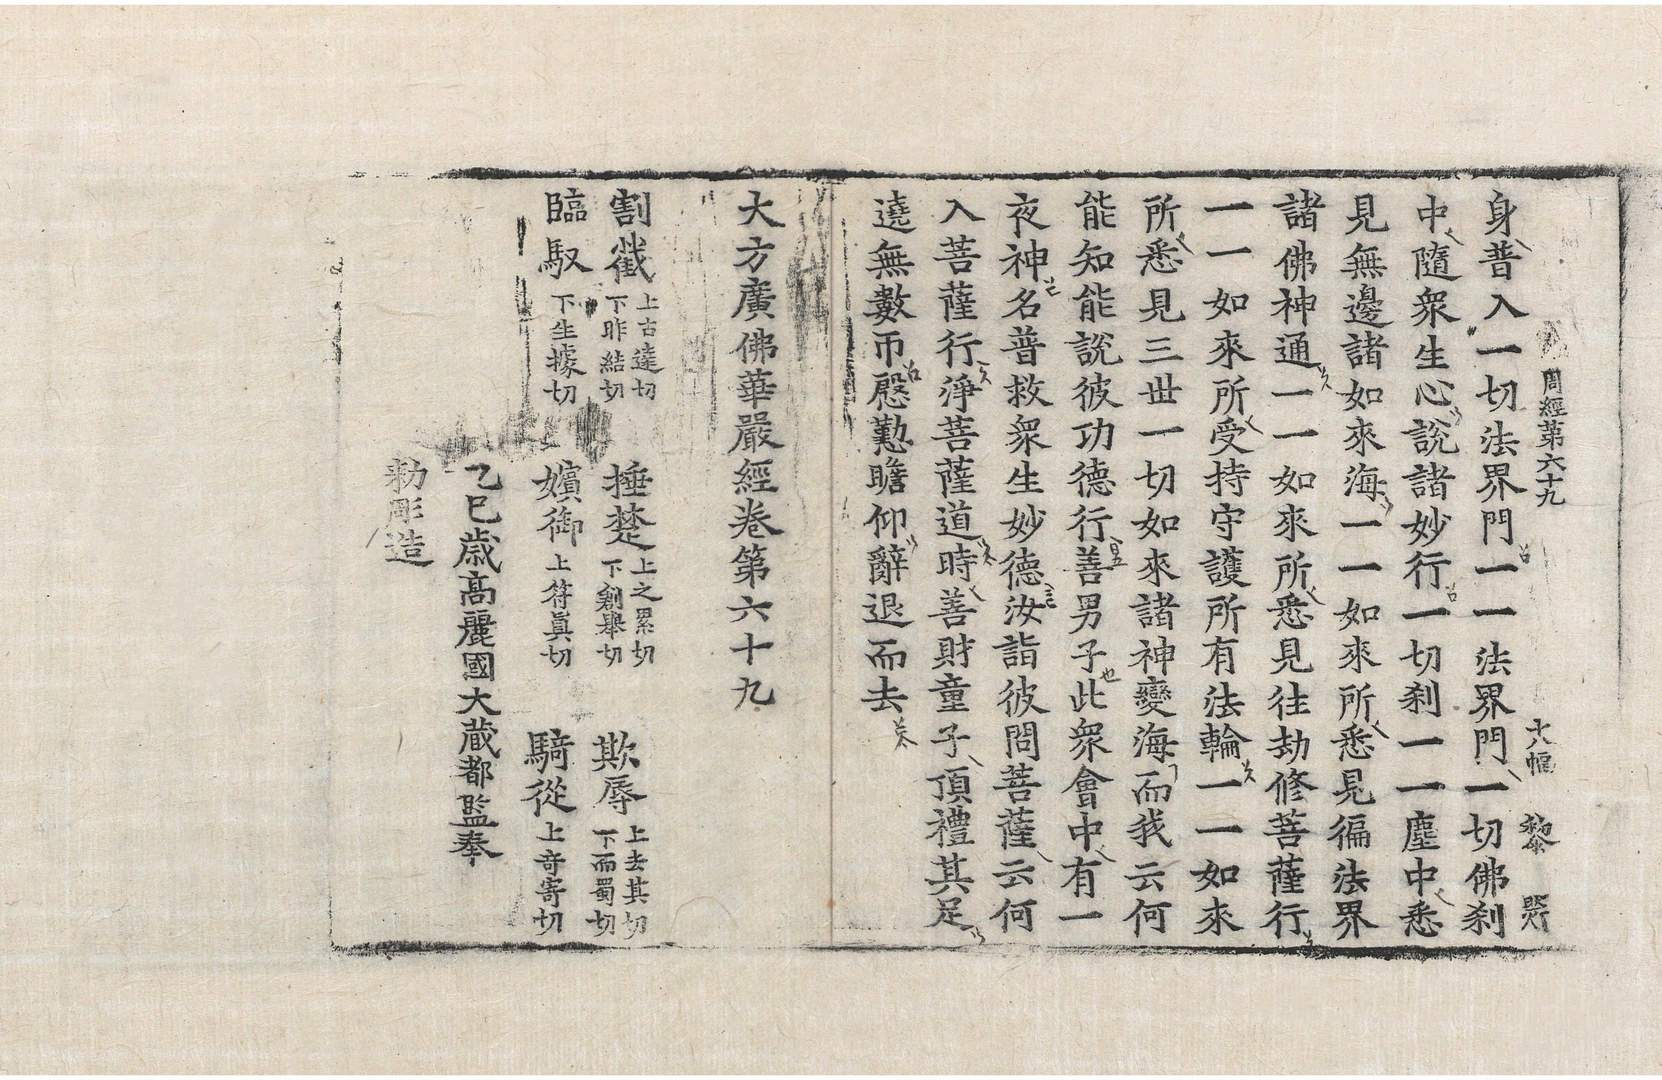 周經第六十九 十八幅 黎
身普入一切法界門一一法界門一切佛刹
中隨衆生心說諸妙行一切刹一一塵中悉
見無邊諸如來海一一如來所悉見徧法界
諸佛神通一一如來所悉見往劫修菩薩行
一一如來所受持守護所有法輪一一如來
所悉見三世一切如來諸神變海而我云何
能知能說彼功德行善男子此衆會中有一
夜神名普救衆生妙德汝詣彼問菩薩云何
入菩薩行淨菩薩道時善財童子頂禮其足
遶無數帀慇懃瞻仰辭退而去
大方廣佛華嚴經卷第六十九
割截 上古達切 下昨結切 捶楚 上之累切 下創舉切 欺辱 上去其切 下而蜀切
臨馭 下牛據切 嬪御 上符眞切 騎從 上奇寄切
乙巳歲高麗國大藏都監奉
勅彫造